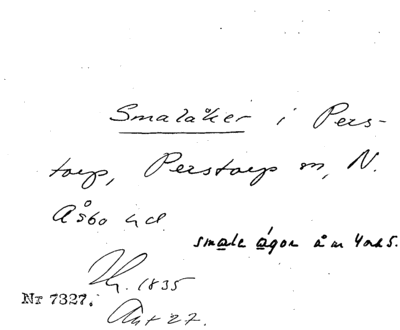 Smalåker i Pers-
torp, Perstorp sn, N.
Åsbo hd.
smala ågon å nr 4 och 5.
1835
Nr 7327.
Akt 27.